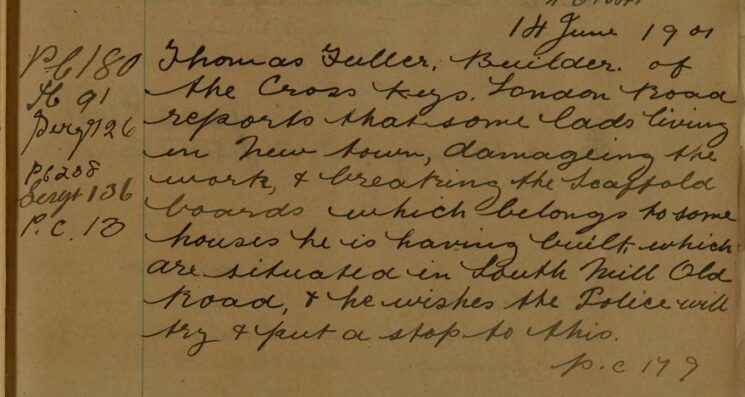 14 June 1901
PC 180
H 91
Sergt 26
PC 238
Sergt 136
P.C. 13
Thomas Fuller, Builder. of
the Cross Keys. London Road
reports that some lads living
in New town, damageing the
work, & breaking the Scaffold
boards which belongs to some
houses he is having built, which
are situated in South Mill Old
Road, & he wishes the Police will
try & put a stop to this.
p.c 179